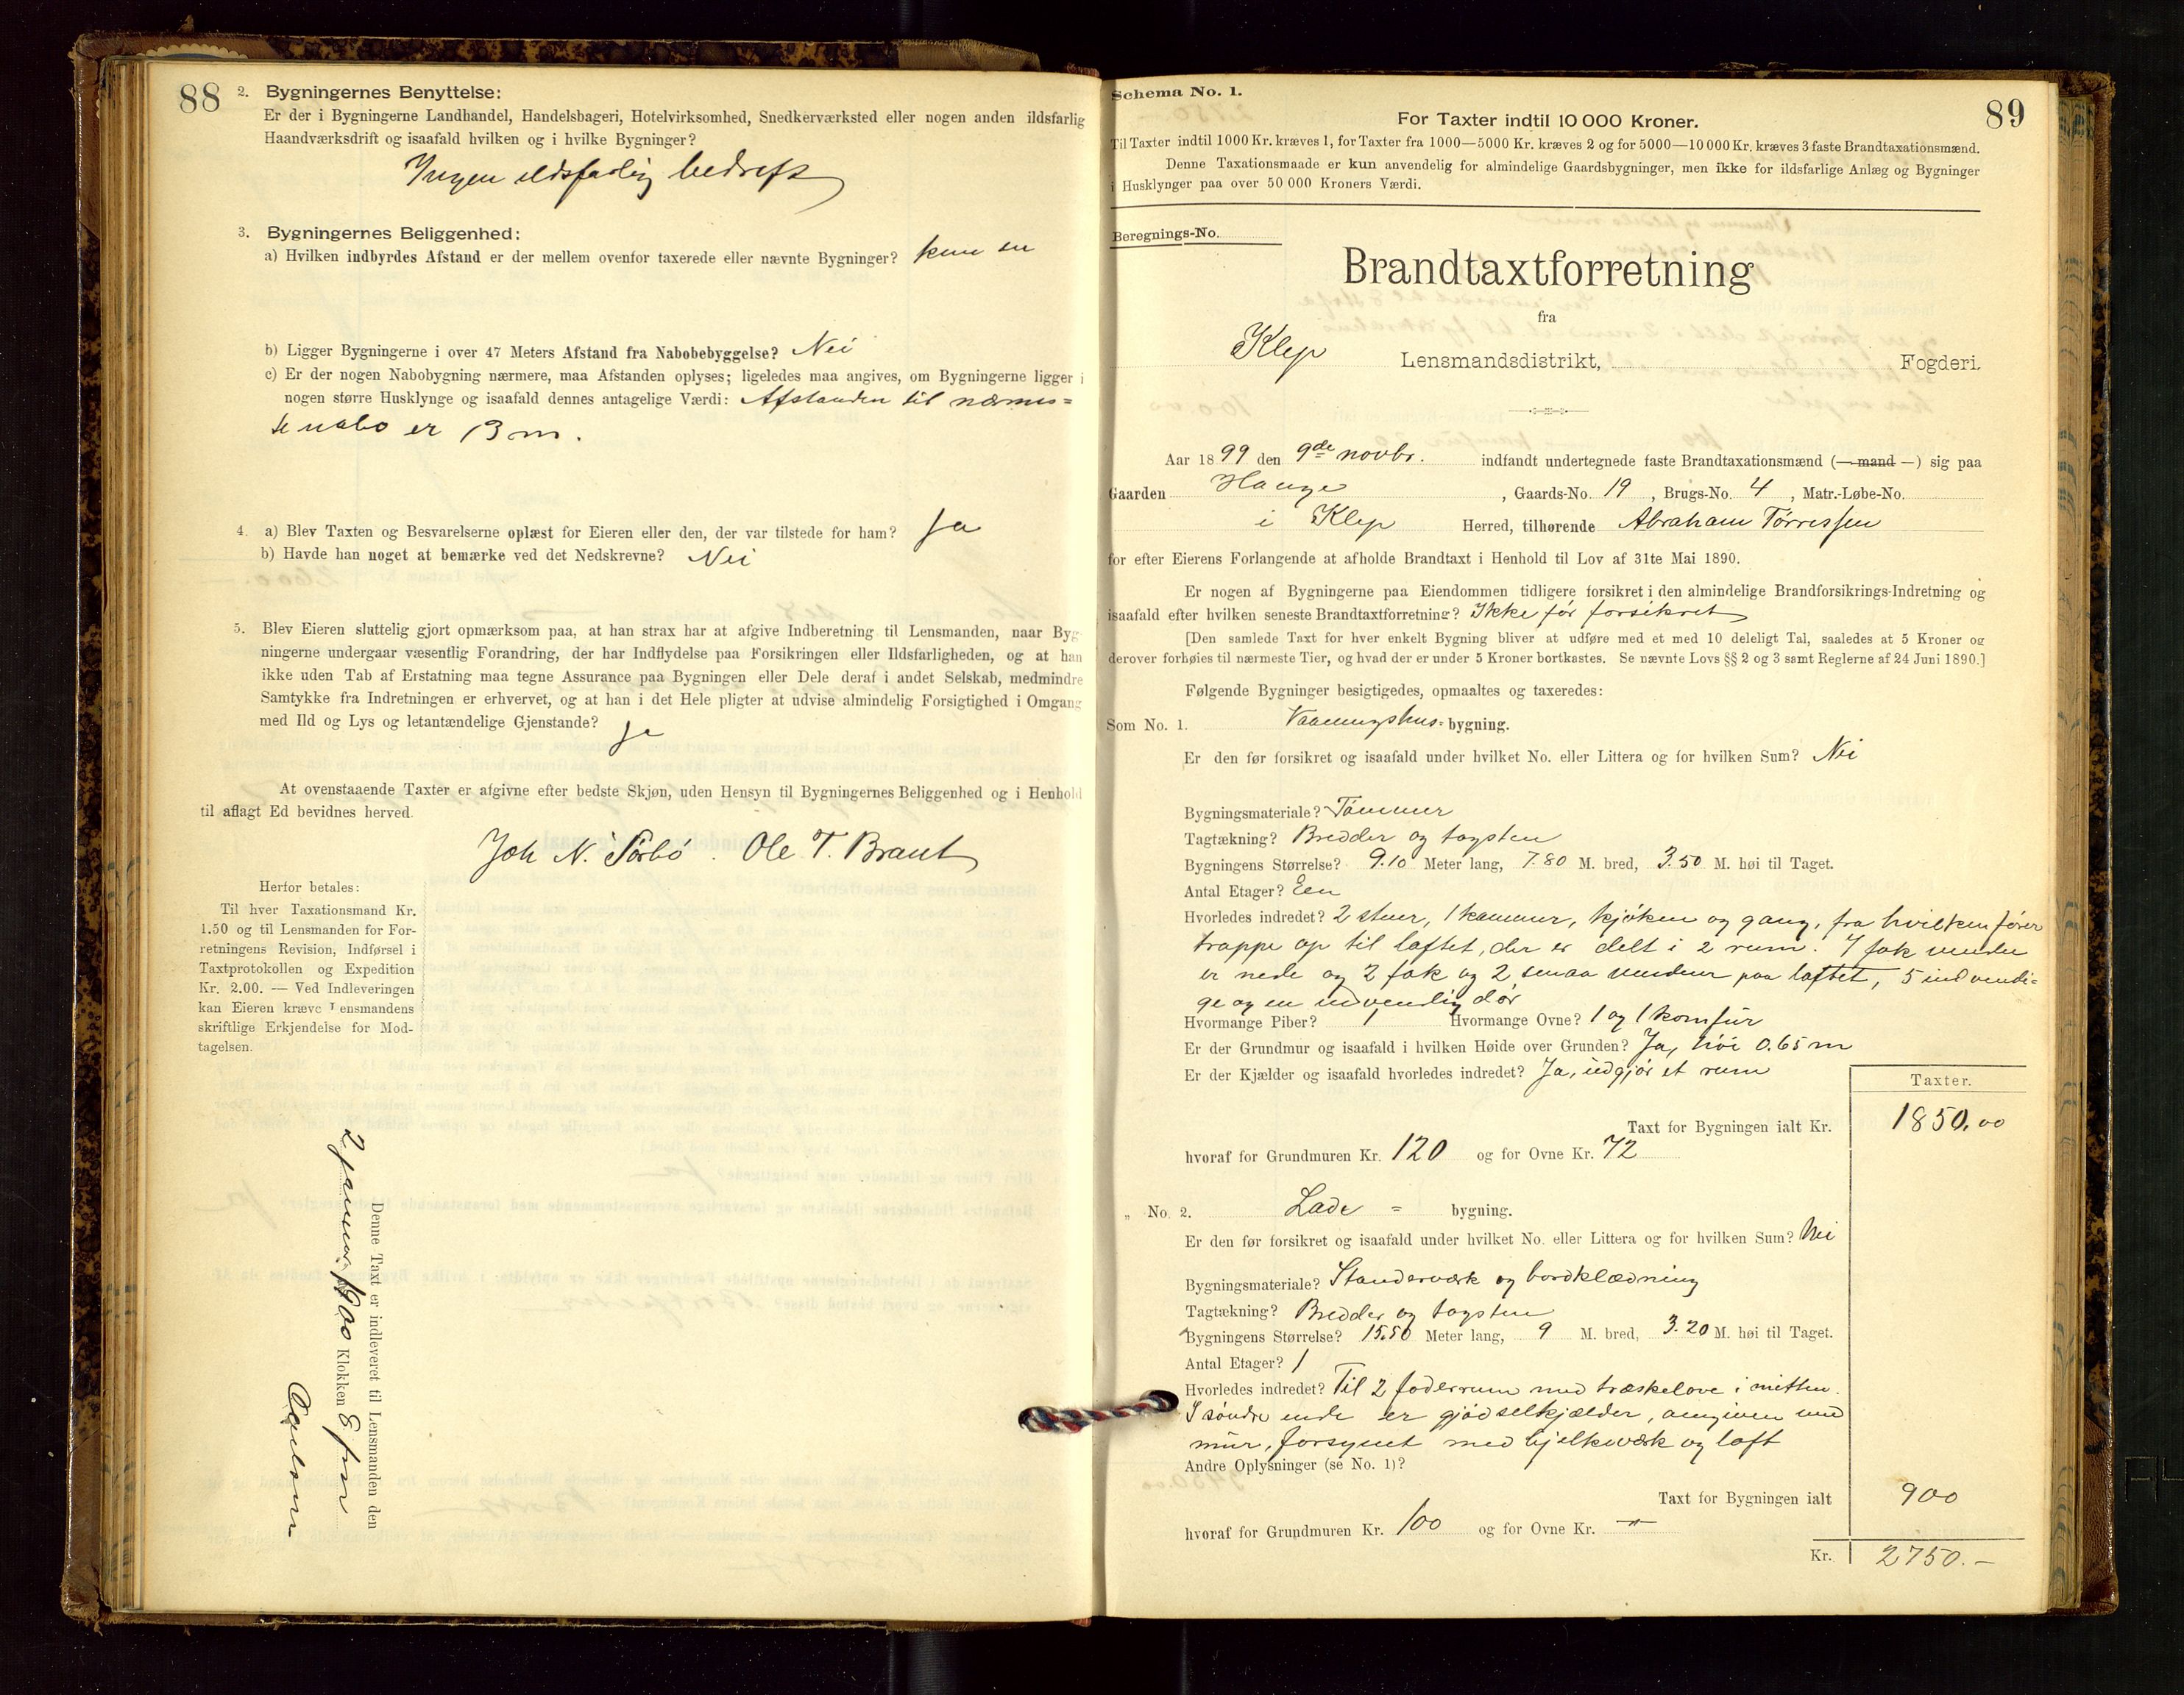 88
2. Bygningernes Benyttelse:
Er der i Bygningerne Landhandel, Handelsbageri, Hotelvirksomhed, Snedkerværksted eller nogen anden ildsfarlig
Haandværksdrift og isaafald hvilken og i hvilke Bygninger?
Ingen ildsfarlig bedrift
3. Bygningernes Beliggenhed:
a) Hvilken indbyrdes Afstand er der mellem ovenfor taxerede eller nævnte Bygninger? kun en
b) Ligger Bygningerne i over 47 Meters Afstand fra Nabobebyggelse? Nei
c) Er der nogen Nabobygning nærmere, maa Afstanden oplyses; ligeledes maa angives, om Bygningerne ligger i
nogen større Husklynge og isaafald dennes antagelige Værdi: Afstanden til nærmes=
te nabo er 13 m.
4. a) Blev Taxten og Besvarelserne oplæst for Eieren eller den, der var tilstede for ham? Ja
b) Havde han noget at bemærke ved det Nedskrevne? Nei
5. Blev Eieren sluttelig gjort opmærksom paa, at han strax har at afgive Indberetning til Lensmanden, naar Byg-
ningerne undergaar væsentlig Forandring, der har Indflydelse paa Forsikringen eller Ildsfarligheden, og at han
ikke uden Tab af Erstatning maa tegne Assurance paa Bygningen eller Dele deraf i andet Selskab, medmindre
Samtykke fra Indretningen er erhvervet, og at han i det Hele pligter at udvise almindelig Forsigtighed i Omgang
med Ild og Lys og letantændelige Gjenstande? Ja
At ovenstaaende Taxter er afgivne efter bedste Skjøn, uden Hensyn til Bygningernes Beliggenhed og i Henhold
til aflagt Ed bevidnes herved.
Joh N. Sørbø. Ole T. Braut
Herfor betales:
Til hver Taxationsmand Kr.
1.50 og til Lensmanden for For-
retningens Revision, Indførsel i
Taxtprotokollen og Expedition
Kr. 2.00. — Ved Indleveringen
kan Eieren kræve Lensmandens
skriftlige Erkjendelse for Mod-
tagelsen.
Denne Taxt er indleveret til Lensmanden den
2 januar 1900 Klokken 8 fm
89
Schema No. 1.
For Taxter indtil 10 000 Kroner.
Til Taxter indtil 1000 Kr. kræves 1, for Taxter fra 1000—5000 Kr. kræves 2 og for 5000—10 000 Kr. kræves 3 faste Brandtaxationsmænd.
Denne Taxationsmaade er kun anvendelig for almindelige Gaardsbygninger, men ikke for ildsfarlige Anlæg og Bygninger
i Husklynger paa over 50 000 Kroners Værdi.
Beregnings-No.
Brandtaxtforretning
fra
Klep Lensmandsdistrikt, Fogderi.
Aar 1899 den 9de novbr. indfandt undertegnede faste Brandtaxationsmænd (— mand —) sig paa
Gaarden Hauge, Gaards-No. 19, Brugs-No. 4, Matr.-Løbe-No.
i Klep Herred, tilhørende Abraham Tørressen
for efter Eierens Forlangende at afholde Brandtaxt i Henhold til Lov af 31te Mai 1890.
Er nogen af Bygningerne paa Eiendommen tidligere forsikret i den almindelige Brandforsikrings-Indretning og
isaafald efter hvilken seneste Brandtaxtforretning? Ikke før forsikret
[Den samlede Taxt for hver enkelt Bygning bliver at udføre med et med 10 deleligt Tal, saaledes at 5 Kroner og
derover forhøies til nærmeste Tier, og hvad der er under 5 Kroner bortkastes. Se nævnte Lovs §§ 2 og 3 samt Reglerne af 24 Juni 1890.]
Følgende Bygninger besigtigedes, opmaaltes og taxeredes:
Som No. 1. Vaaningshus- bygning.
Er den før forsikret og isaafald under hvilket No. eller Littera og for hvilken Sum? Nei
Bygningsmateriale? Tømmer
Tagtækning? Bredder og tagsten
Bygningens Størrelse? 9.10 Meter lang, 7.80 M. bred, 3.50 M. høi til Taget.
Antal Etager? Een
Hvorledes indredet? 2 stuer, 1 kammer, kjøken og gang, fra hvilken fører
trappe op til loftet, der er delt i 2 rum. 7 fak vindu
er nede og 2 fak og 2 smaa vinduer paa loftet, 5 indvendi-
ge og en udvendig dør
Hvormange Piber? 1 Hvormange Ovne? 1 og 1 komfür
Er der Grundmur og isaafald i hvilken Høide over Grunden? Ja, høi 0.65 m
Er der Kjælder og isaafald hvorledes indredet? Ja, udgjør et rum
Taxter.
Taxt for Bygningen ialt Kr. 1850.00
hvoraf for Grundmuren Kr. 120 og for Ovne Kr. 72
„ No. 2. Lade = bygning.
Er den før forsikret og isaafald under hvilket No. eller Littera og for hvilken Sum? Nei
Bygningsmateriale? Standerværk og bordklædning
Tagtækning? Bredder og tagsten
Bygningens Størrelse? 15.50 Meter lang, 9 M. bred, 3.20 M. høi til Taget.
Antal Etager? 1
Hvorledes indredet? Til 2 foderrum med træskelove i mitten.
I søndre ende er gjødselkjælder, omgiven med
mür, forsynet med bjelkværk og loft
Andre Oplysninger (se No. 1)?
Taxt for Bygningen ialt 900
hvoraf for Grundmuren Kr. 100 og for Ovne Kr. —"—
Kr. 2750.—